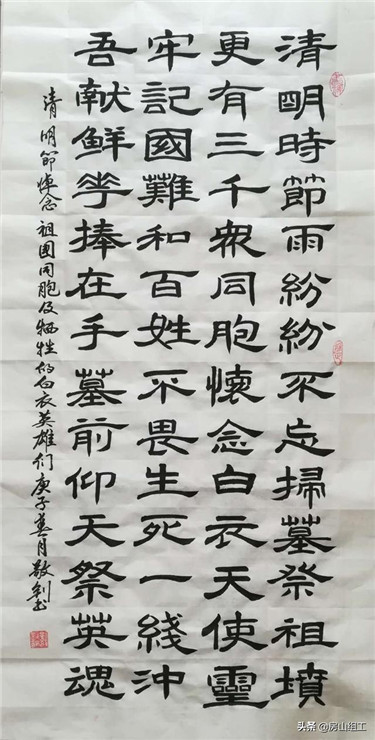 清明時節雨紛紛不忘掃墓祭祖墳
更有三千衆同胞懷念白衣天使靈
牢記國難和百姓不畏生死一綫沖
吾献鲜花捧在手墓前仰天祭英魂
清明節悼念祖国同胞及牺牲的白衣英雄们庚子月敬书
头条 @房山组工